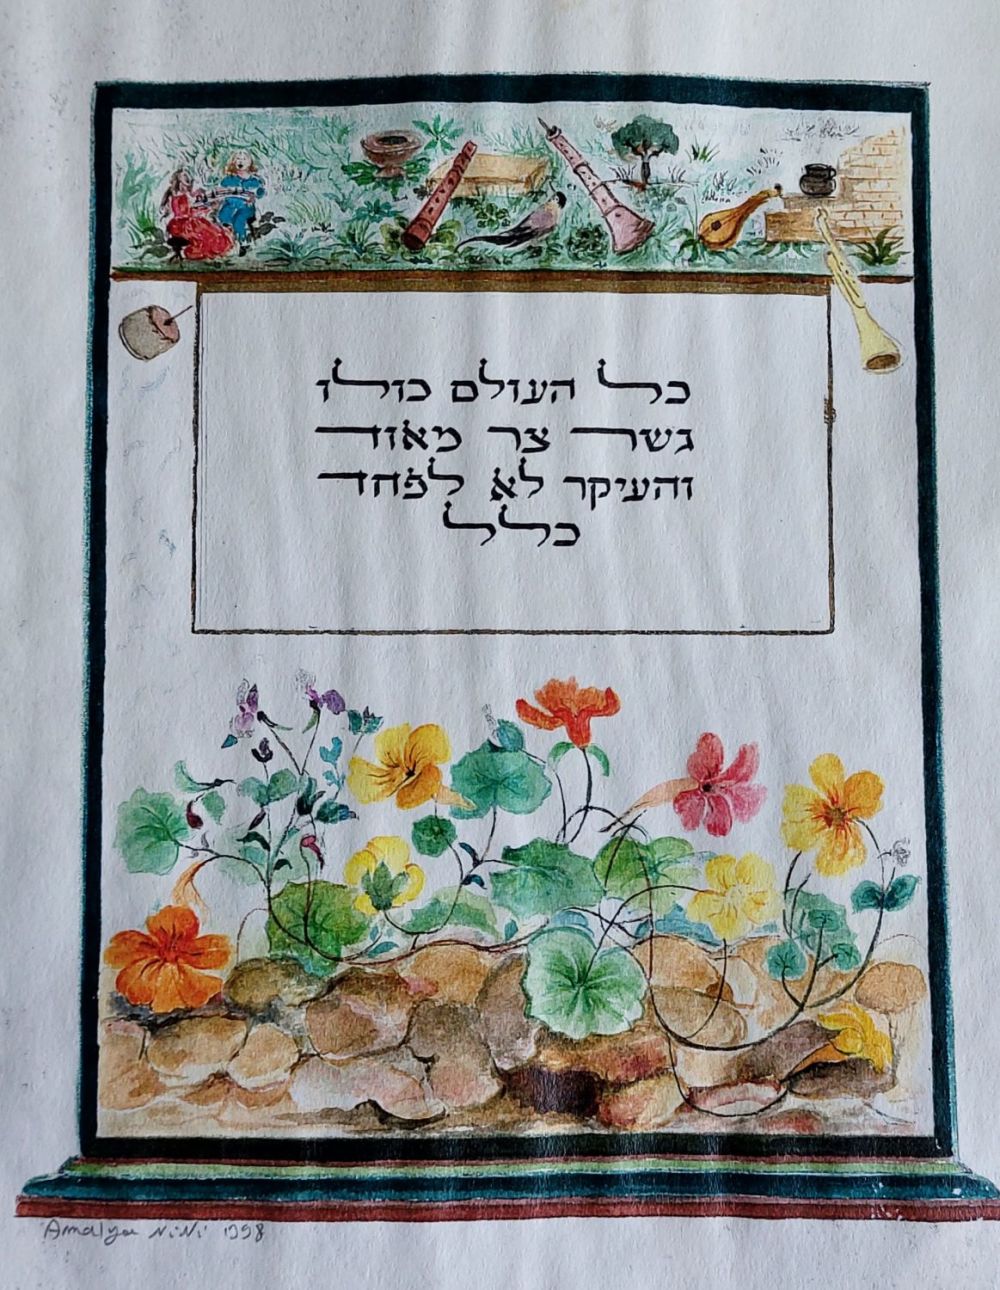 כל העולם כולו
גשר צר מאוד
והעיקר לא לפחד
כלל
Amalya NiNi 1998